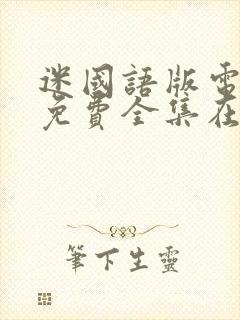 迷國語版電
免費全集在
筆下生靈